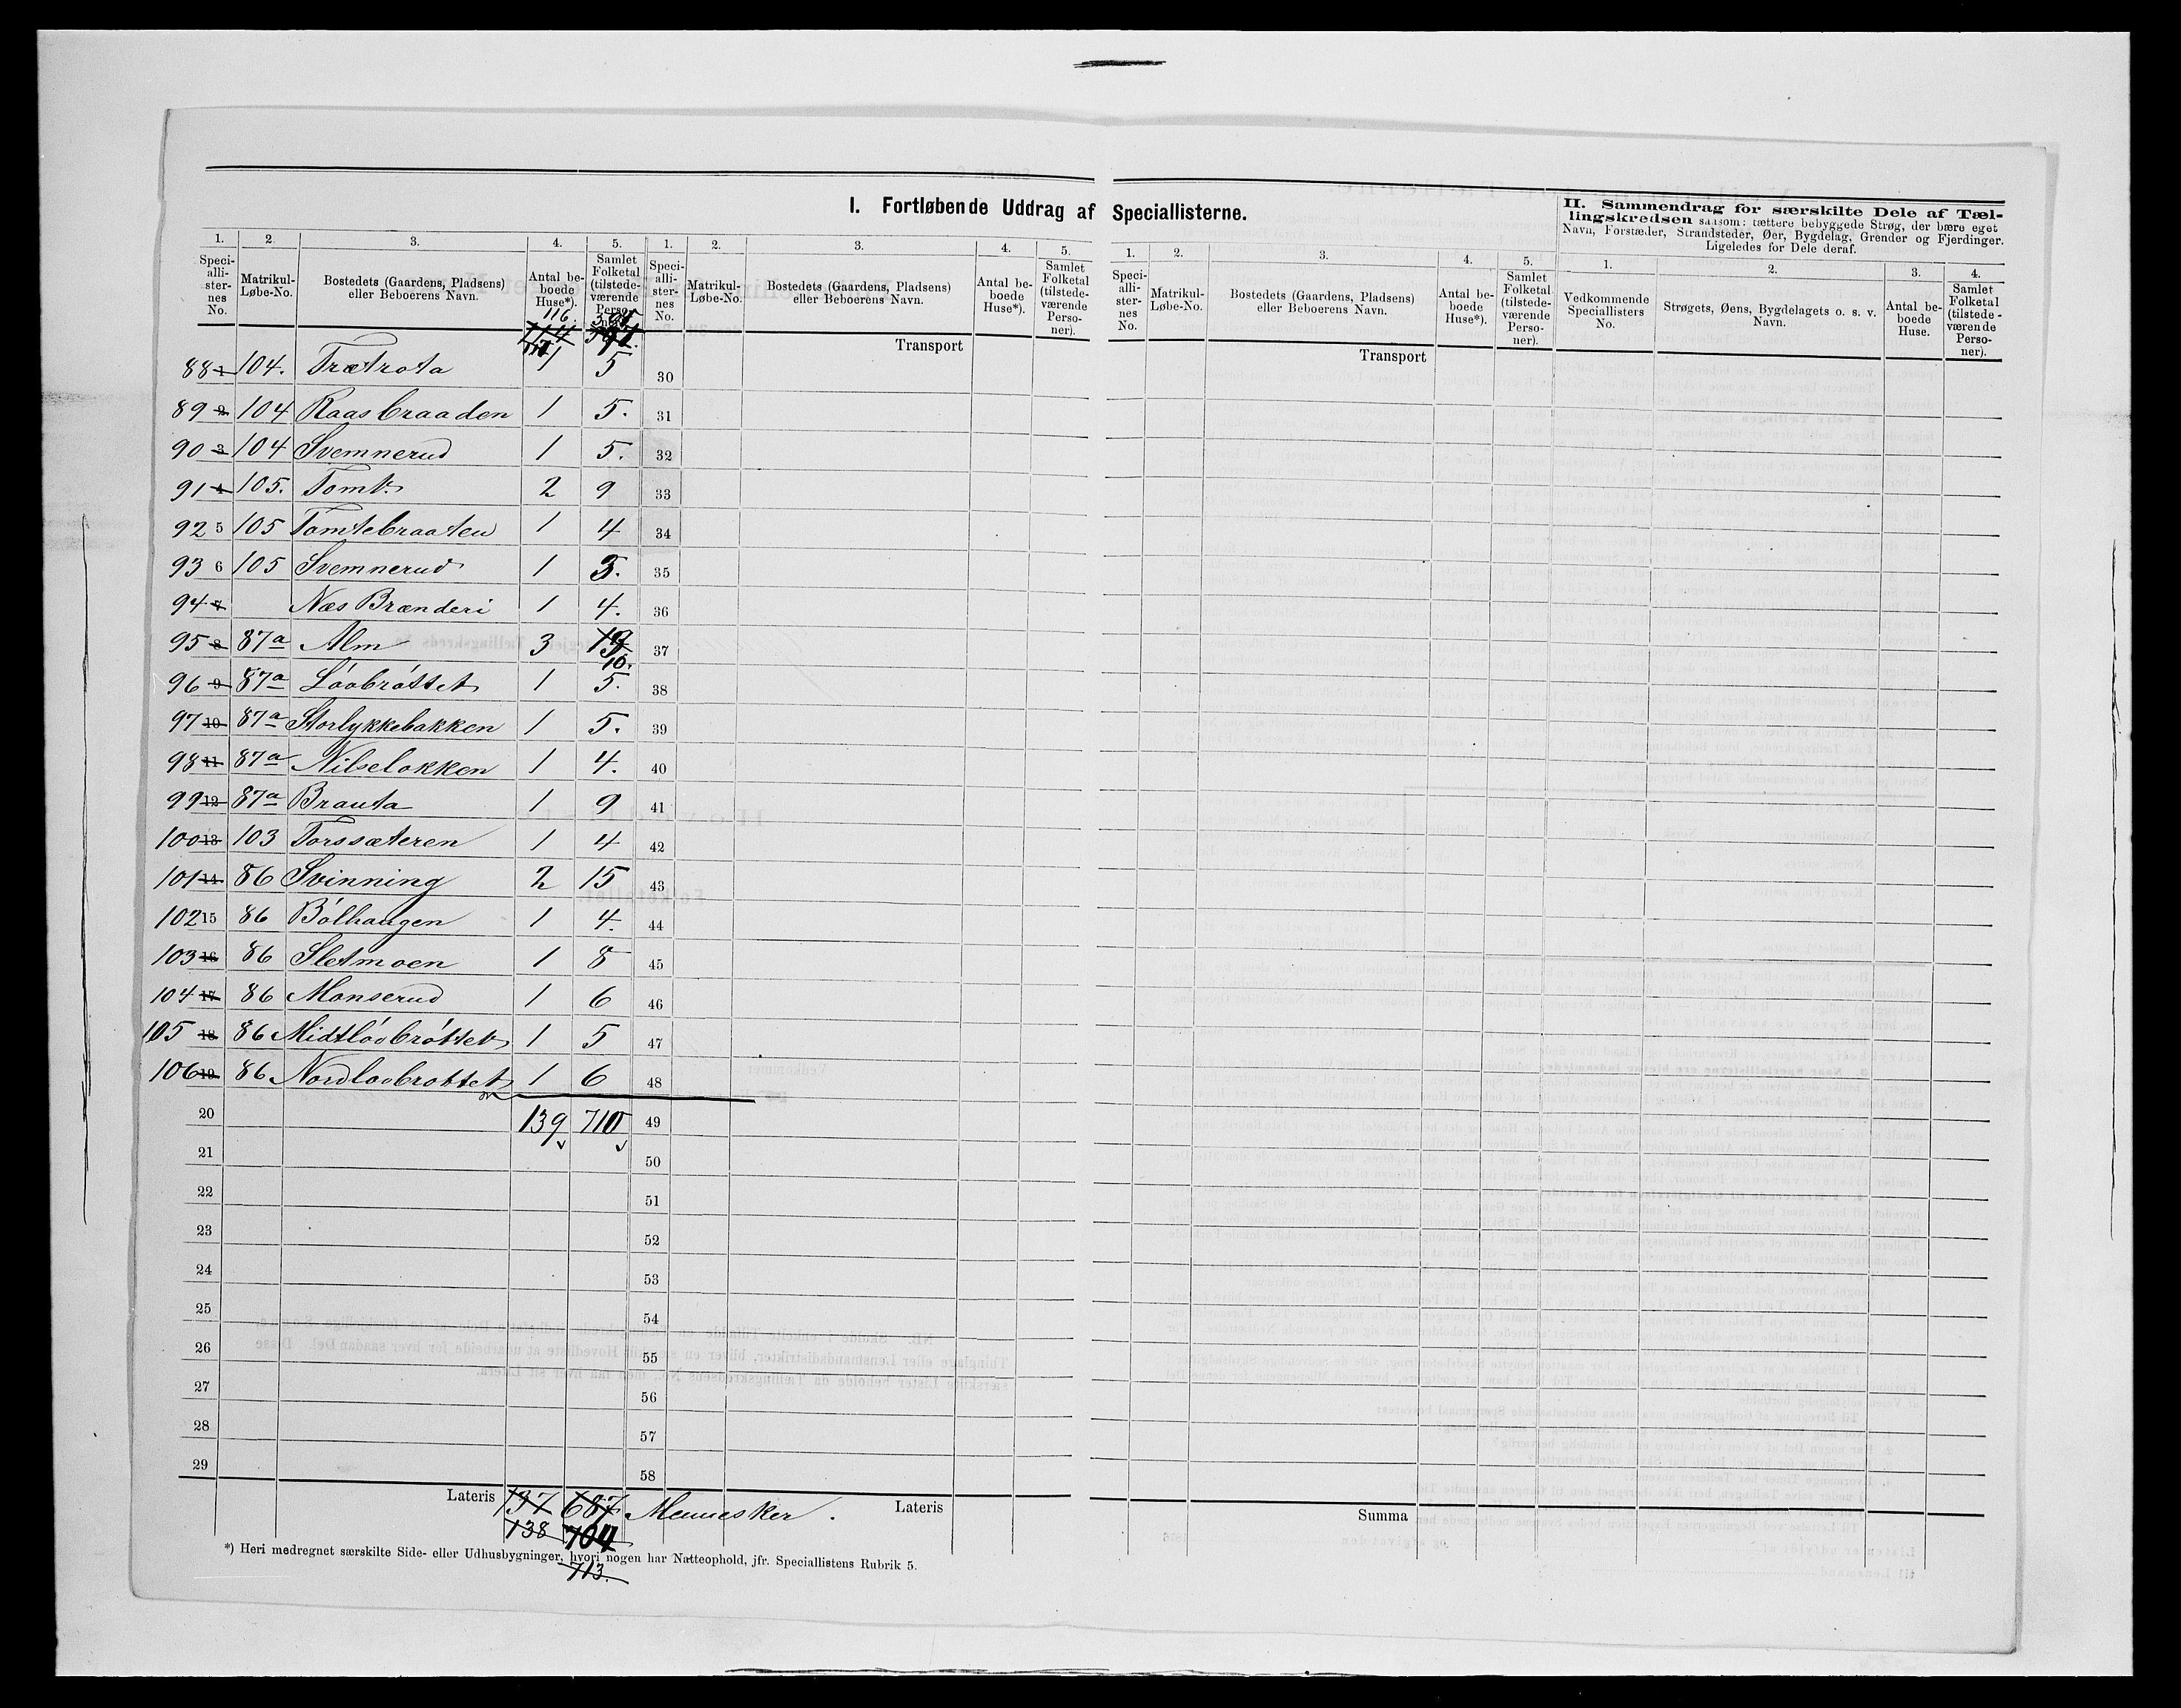 I. Fortløbende Uddrag af Speciallisterne.
II. Sammendrag for særskilte Dele af Tæl-
lingskredsen saasom: tættere bebyggede Strøg, der bære eget
Navn, Forstæder, Strandsteder, Øer, Bygdelag, Grender og Fjerdinger.
Ligeledes for Dele deraf.
1. 2. 3. 4. 5. 1. 2. 3. 4. 5. 1. 2. 3. 4. 5. 1. 2. 3. 4.
Speci-alli-ster-nes No. Matrikul-Løbe-No. Bostedets (Gaardens, Pladsens) eller Beboerens Navn. Antal be-boede Huse*). Samlet Folketal (tilstede-værende Perso-ner).
Speci-alli-ster-nes No. Matrikul-Løbe-No. Bostedets (Gaardens, Pladsens) eller Beboerens Navn. Antal be-boede Huse*). Samlet Folketal (tilstede-værende Perso-ner).
Speci-alli-ster-nes No. Matrikul-Løbe-No. Bostedets (Gaardens, Pladsens) eller Beboerens Navn. Antal be-boede Huse*). Samlet Folketal (tilstede-værende Perso-ner).
Vedkommende Speciallisters No. Strøgets, Øens, Bygdelagets o. s. v. Navn. Antal be-boede Huse. Samlet Folketal (tilstede-værende Perso-ner).
116.
Transport Transport
88 1 104. Trætrota 1 5 30
89 2 104 Raasbraaden 1 5. 31
90 3 104 Svemnerud 1 5. 32
91 4 105. Tomt. 2 9 33
92 5 105 Tomtebraaten 1 4 34
93 6 105 Svemnerud 1 3. 35
94 7 Næs Brænderi 1 4. 36
95 8 87a Alm 3 10. 37
96 9 87a Lóobróttet 1 5. 38
97 10 87a Storlykkebakken 1 5. 39
98 11 87a Nilselokken 1 4. 40
99 12 87a Brauta 1 9 41
100 13 103 Torssæteren 1 4 42
101 14 86 Svinning 2 15 43
102 15 86 Bólhaugen 1 4. 44
103 16 86 Sletmoen 1 8 45
104 17 86 Monserud 1 6 46
105 18 86 Midtlóobróttet 1 5 47
106 19 86 Nordloobrottet 1 6 48
20 139 710 49
21 50
22 51
23 52
24 53
25 54
26 55
27 56
28 57
29 58
Lateris 137 687 Mennesker. Lateris Summa
138 704
*) Heri medregnet særskilte Side- eller Udhusbygninger, hvori nogen har Natteophold, jfr. Speciallistens Rubrik 5.
713.